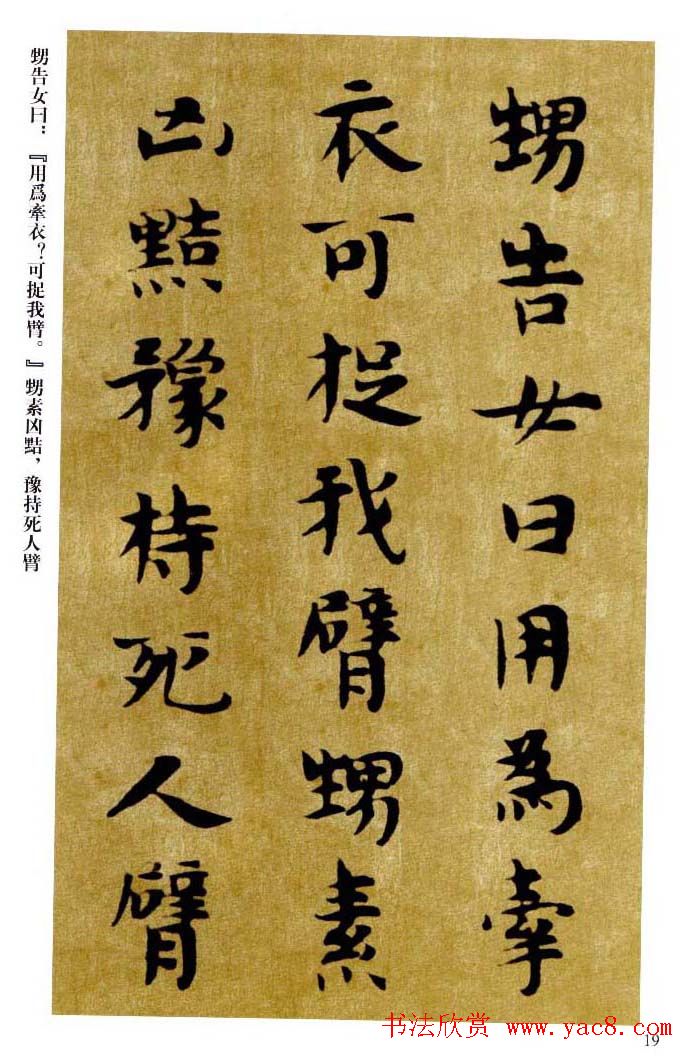 甥告女曰用為牽
衣可捉我臂甥素
凶黠豫持死人臂
甥告女曰：『用爲牽衣？可捉我臂。』甥素凶黠，豫持死人臂
书法欣赏 www.yac8.com
19